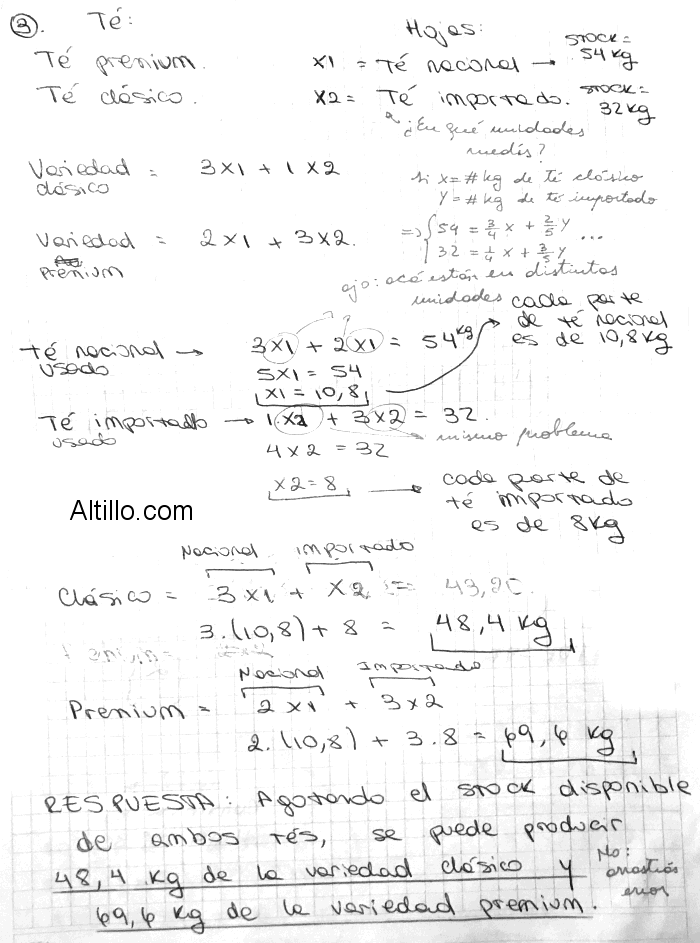 3. Té:
Hojas:
Té premium.
X1 = Té nacional → STOCK = 54 kg
Té clásico.
X2 = Té importado. STOCK = 32 kg
¿En qué unidades medís?
Variedad clásico = 3X1 + 1X2
si x = # kg de té clásico
y = # kg de té importado
Variedad premium = 2X1 + 3X2.
⇒ { 54 = 3/4 x + 2/5 y
32 = 1/4 x + 3/5 y ...
ojo: acá están en distintas unidades
Té nacional usado → 3X1 + 2X1 = 54 kg
cada parte de té nacional es de 10,8 kg
5X1 = 54
X1 = 10,8
Té importado usado → 1.X2 + 3X2 = 32.
mismo problema
4X2 = 32
X2 = 8 → cada parte de té importado es de 8 kg
Altillo.com
Nacional Importado
Clásico = 3X1 + X2 = 43,20.
3.(10,8) + 8 = 48,4 kg
Nacional Importado
Premium = 2X1 + 3X2
2.(10,8) + 3.8 = 69,6 kg
RESPUESTA: Agotando el stock disponible
de ambos tés, se puede producir
48,4 kg de la variedad clásico y
69,6 kg de la variedad premium.
No: arrastrás error